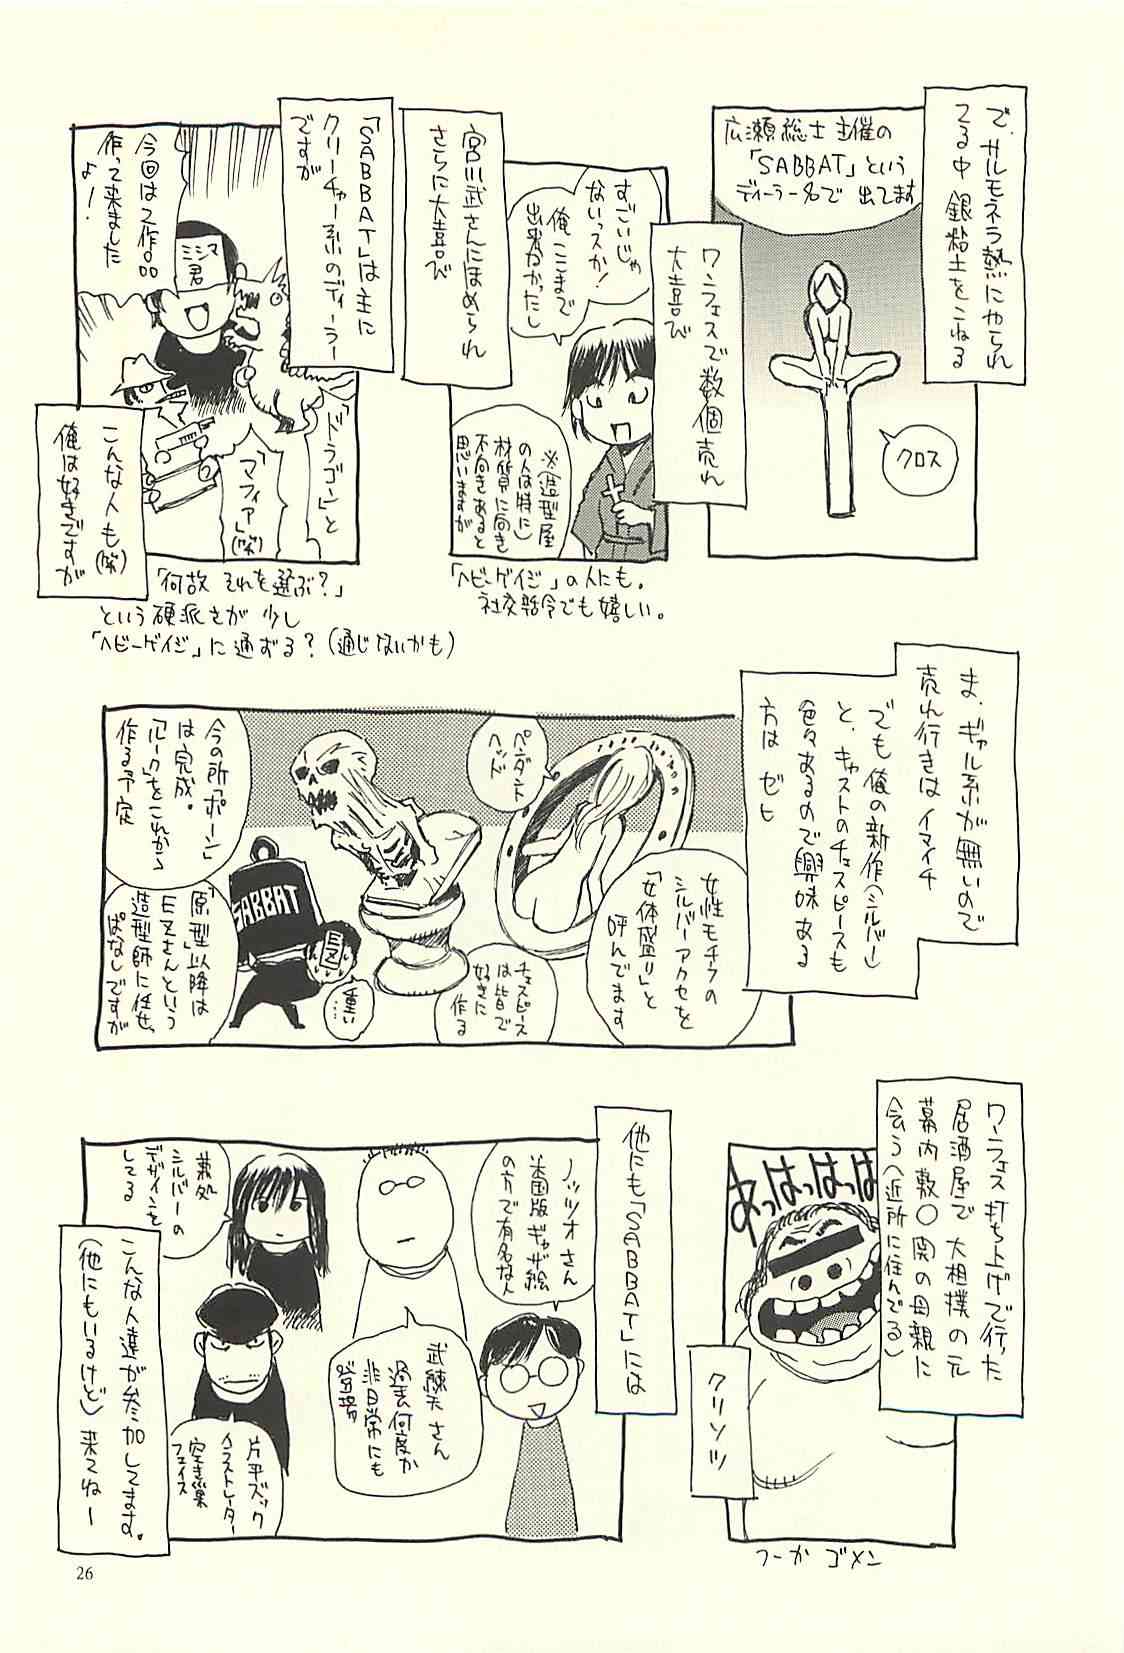 で、サルモネラ熱にやられ
てる中 銀粘土をこねる
広瀬総士 主催の
「SABBAT」という
ディーラー名で 出てます
クロス
ワンフェスで数個売れ
大喜び
すごいじゃ
ないっスか!
俺ここまで
出来なかったし
※(造型屋
の人は特に)
材質に向き
不向きあると
思いますが
「ヘビーゲイジ」の人にも。
社交辞令でも嬉しい。
宮川武さんにほめられ
さらに大喜び
「SABBAT」は主に
クリーチャー系のディーラー
ですが
今回は2作品
作って来ました
よ!
ミシマ
君
「ドラゴン」と
「マフィア」(笑)
こんな人も(笑)
俺は好きですが
「何故 それを選ぶ?」
という硬派さが 少し
「ヘビーゲイジ」に通ずる?(通じないかも)
ま、ギャル系が無いので
売れ行きはイマイチ
でも俺の新作(シルバー)
と、キャストのチェスピースも
色々あるので興味ある
方はゼヒ
ペンダント
ヘッド
女性モチーフの
シルバーアクセを
「女体盛り」と
呼んでます
チェスピース
は皆で
好きに
作る
今の所「ポーン」
は完成。
「ルーク」をこれから
作る予定
SABBAT
EZ
重い
……
「原型」以降は
EZさんという
造型師に任せっ
ぱなしですが
ワンフェス打ち上げで行った
居酒屋で 大相撲の元
幕内敷〇関の母親に
会う(近所に住んでる)
あっはっはっは
クリソツ
つーか ゴメン
他にも「SABBAT」には
ノッツオさん
米国版ギャザ絵
の方で有名な人
武藤天さん
過去何度か
非日常にも
登場
兼処
シルバーの
デザインを
してる
片平ズック
イラストレーター
空き巣
フェイス
こんな人達が参加してます。
(他にもいるけど)来てねー
26